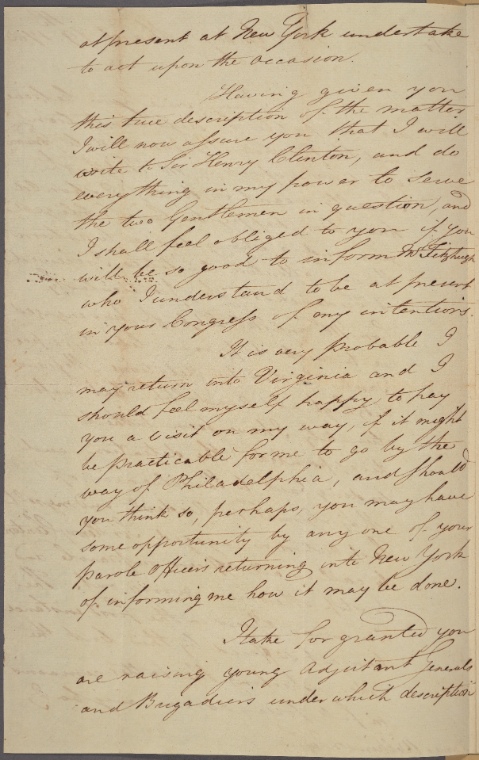 at present at New York undertake
to act upon the occasion.
Having given you
this true description of the matter
I will now assure you that I will
write to Sir Henry Clinton, and do
everything in my power to serve
the two Gentlemen in question, and
I shall feel obliged to you if you
will be so good to inform Mr Fitzhugh
who I understand to be at present
in your Congress of my intentions.
It is very probable I
may return into Virginia and I
should feel myself happy to pay
you a visit on my way, if it might
be practicable for me to go by the
way of Philadelphia, and should
you think so, perhaps, you may have
some opportunity by any one of your
parole officers returning into New York
of informing me how it may be done.
I take for granted you
are raising young Adjutant Generals
and Brigadiers under which description